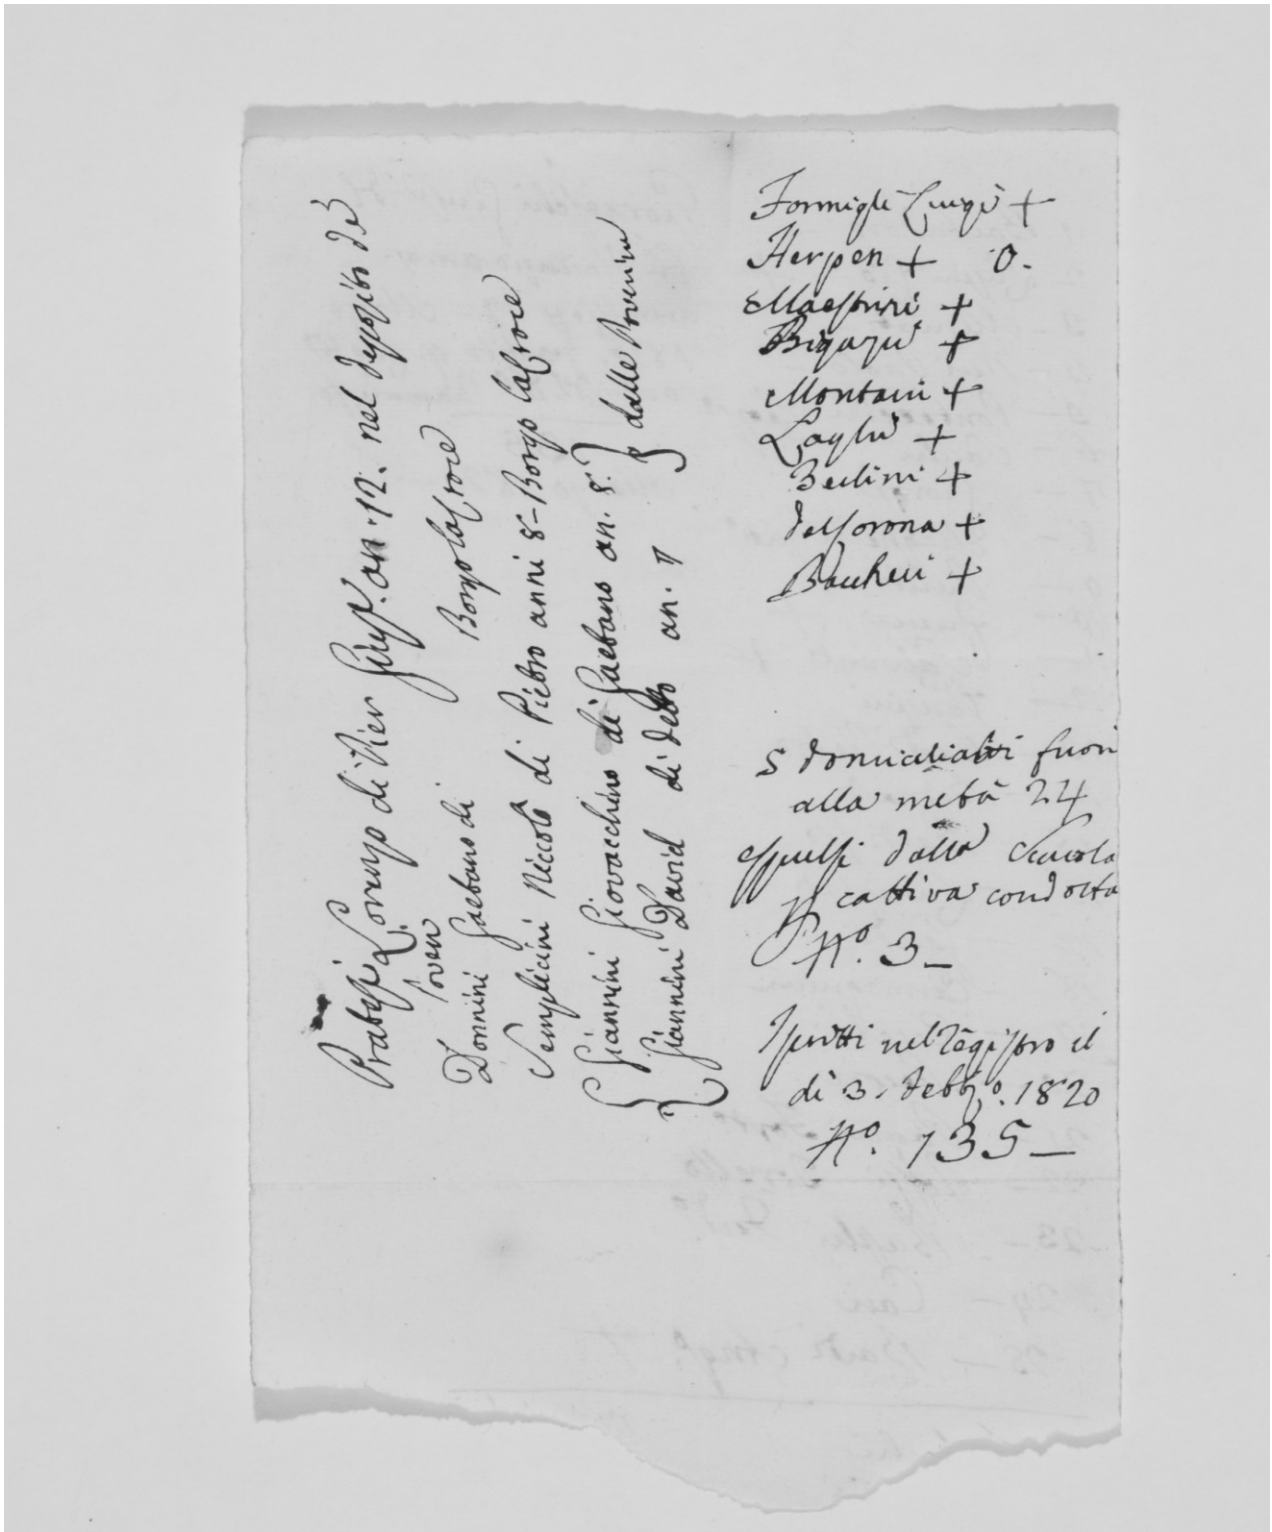 Pratesi Lorenzo di Pier Gius.e an. 12. nel deposito dei
Coven
Borgo la Croce
Donnini Gaetano di
Semplicini Niccolò di Pietro anni 8 - Borgo la Croce
Giannini Giovacchino di Gaetano an. 8.
Giannini David di detto an. 7
dalle Rovinate
Formigli Luigi +
Herpen + 0.
Maestrini +
Bigazzi +
Montaini +
Laghi +
Berlini +
del Corona +
Baucheri +
5 domiciliati fuori
alla metà 24
espulsi dalla Scuola
p cattiva condotta
No. 3 -
Iscritti nel Registro il
dì 3. Febb.o. 1820
No. 135 -